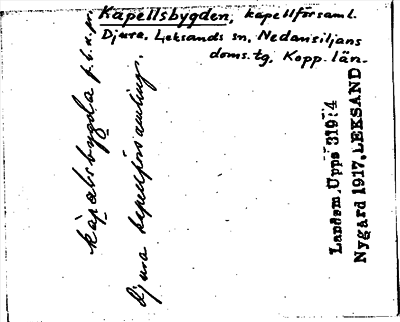 Kapellsbygden, kapellförsaml.
Djura. Leksands sn, Nedansiljans
doms. tg, Kopp. län.
kapalsbygda f. b. n. pr.
Djura kapellförsamling.
Landsm. Upps 319:4
Nygård 1917. LEKSAND